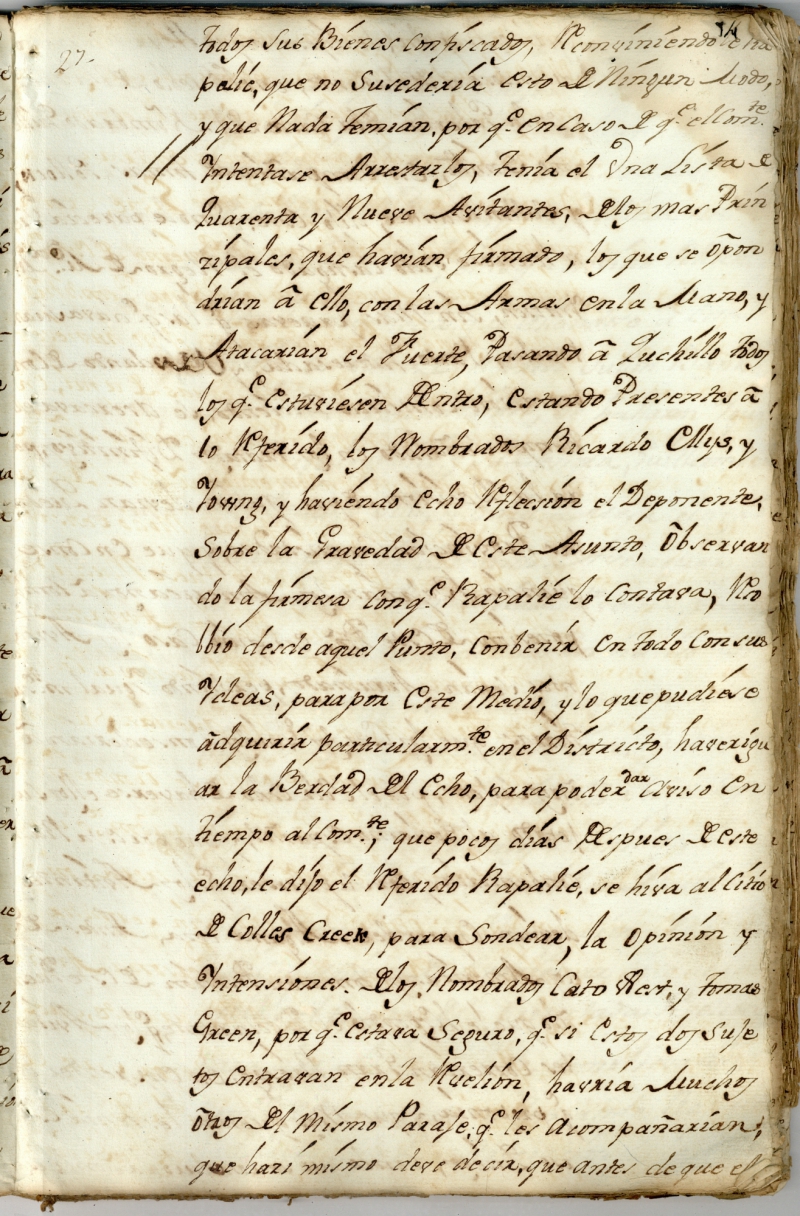 27.
todos sus Bienes confiscados, Reconviniendole Ra
palié, que no Susedería esto de Ningun Modo,
y que Nada temían, por q.e en Caso de q.e el Com.te
Yntentase Arrestarlos, tenía el Vna Lista de
Quarenta y Nueve Avitantes, de los mas Prin
zipales, que havían firmado, los que se opon
drían â ello, con las Armas en la Mano, y
Atacarían el Fuerte, Pasando â Quchillo todos
los q.e estuviésen dentro, estando Presentes â
lo Referido, los Nombrados Ricardo Ellys, y
Yovvng, y haviéndo echo Reflecsión el Deponente,
Sobre la Gravedad de Este Asunto, Observan
do la firmesa con q.e Rapalié lo Contava, Reso
lbio desde aquel Punto, Conbenír en todo con sus
Ydeas, para por este Medio, y lo que pudiése
âdquirír particularm.te en el Districto, haverigu
ar la Berdad del Echo, para poder dar aviso en
tiempo al Com.te; que pocos días despues de este
echo, le dijo el Referído Rapalié, se híva al Citio
de Colles Creek, para Sondear, la opíníón y
Yntensiones de los Nombrados Cato West, y Tomas
Green, por q.e estava Seguro, q.e si estos dos Suje
tos entravan en la Revelión, havría Muchos
ôtros del Mísmo Paraje, q.e les acompañarían;
que hazí mísmo deve decír, que antes de que el